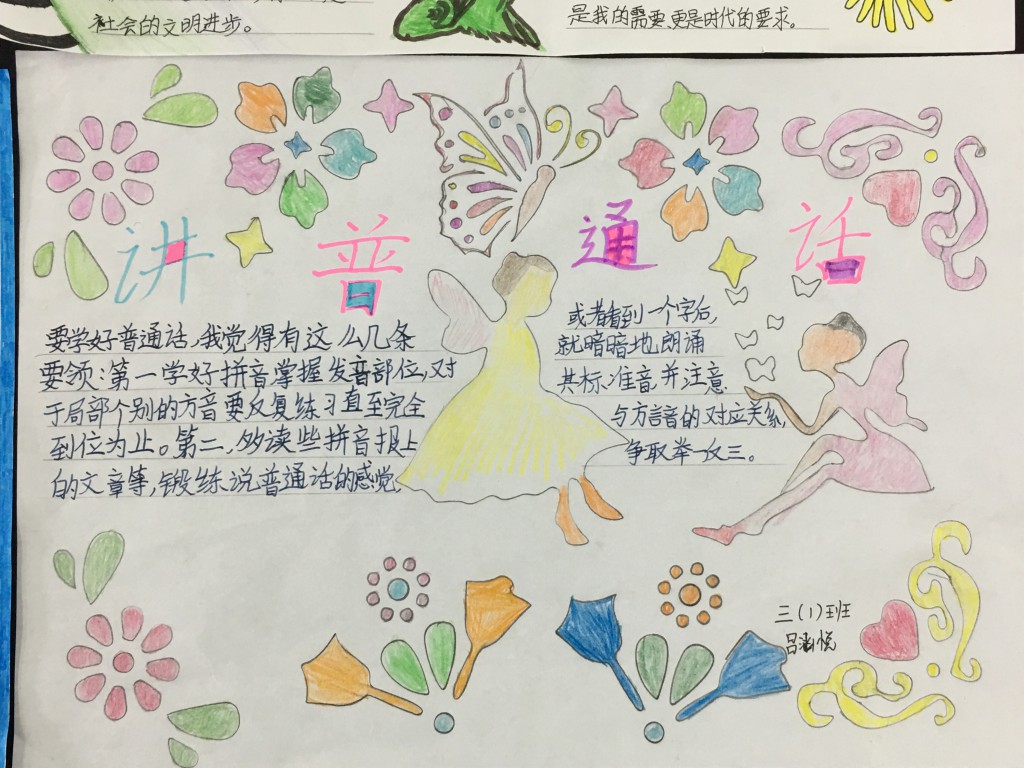 社会的文明进步。
是我的需要,更是时代的要求。
讲普通话
要学好普通话,我觉得有这么几条
要领:第一学好拼音掌握发音部位,对
于局部个别的方音要反复练习直至完全
到位为止。第二,多读些拼音报上
的文章等,锻练说普通话的感觉,
或者看到一个字后,
就暗暗地朗诵
其标准音,并注意
与方言音的对应关系,
争取举一反三。
三(1)班
吕涵悦